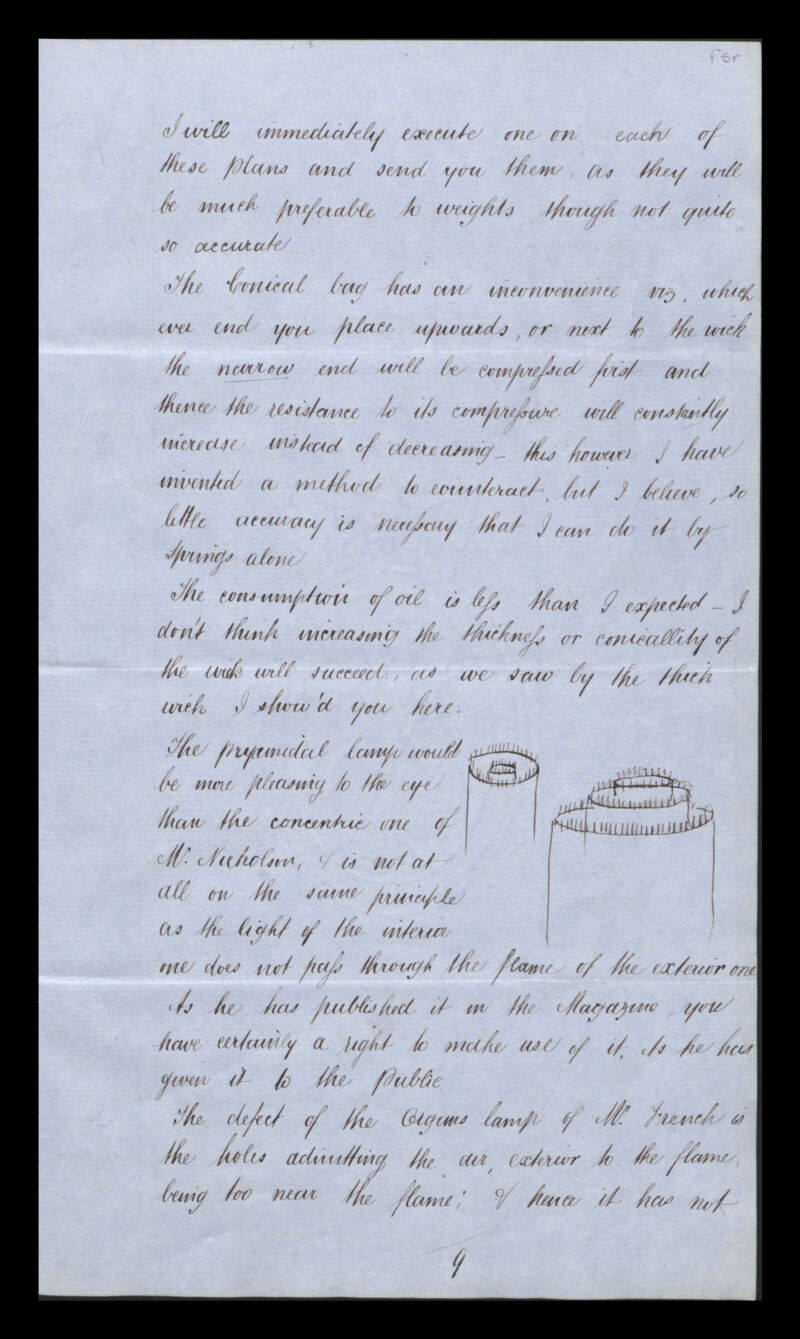 f5r
I will immediately execute one on each of
these plans and send you them, as they will
be much preferable to weights though not quite
so accurate
The Conical bag has an inconvenience viz, which
ever end you place upwards, or next to the wick
the narrow end will be compressed first and
thence the resistance to its compressure will constantly
increase instead of decreasing – this however I have
invented a method to counteract, but I believe, so
little accuracy is necessary that I can do it by
springs alone
The consumption of oil is less than I expected – I
don't think increasing the thickness or conicallity of
the wick will succeed, as we saw by the thick
wick I show'd you here.
The prymidal lamp would
be more pleasing to the eye
than the concentric one of
Mr. Nicholson, & is not at
all on the same principle
as the light of the interior
one does not pass through the flame of the exterior one
As he has published it in the Magazine, you
have certainly a right to make use of it, As he has
given it to the Public
The defect of the Orguns lamp of Mr. French is
the holes admitting the air, exterior to the flame,
being too near the flame; & hence it has not
9